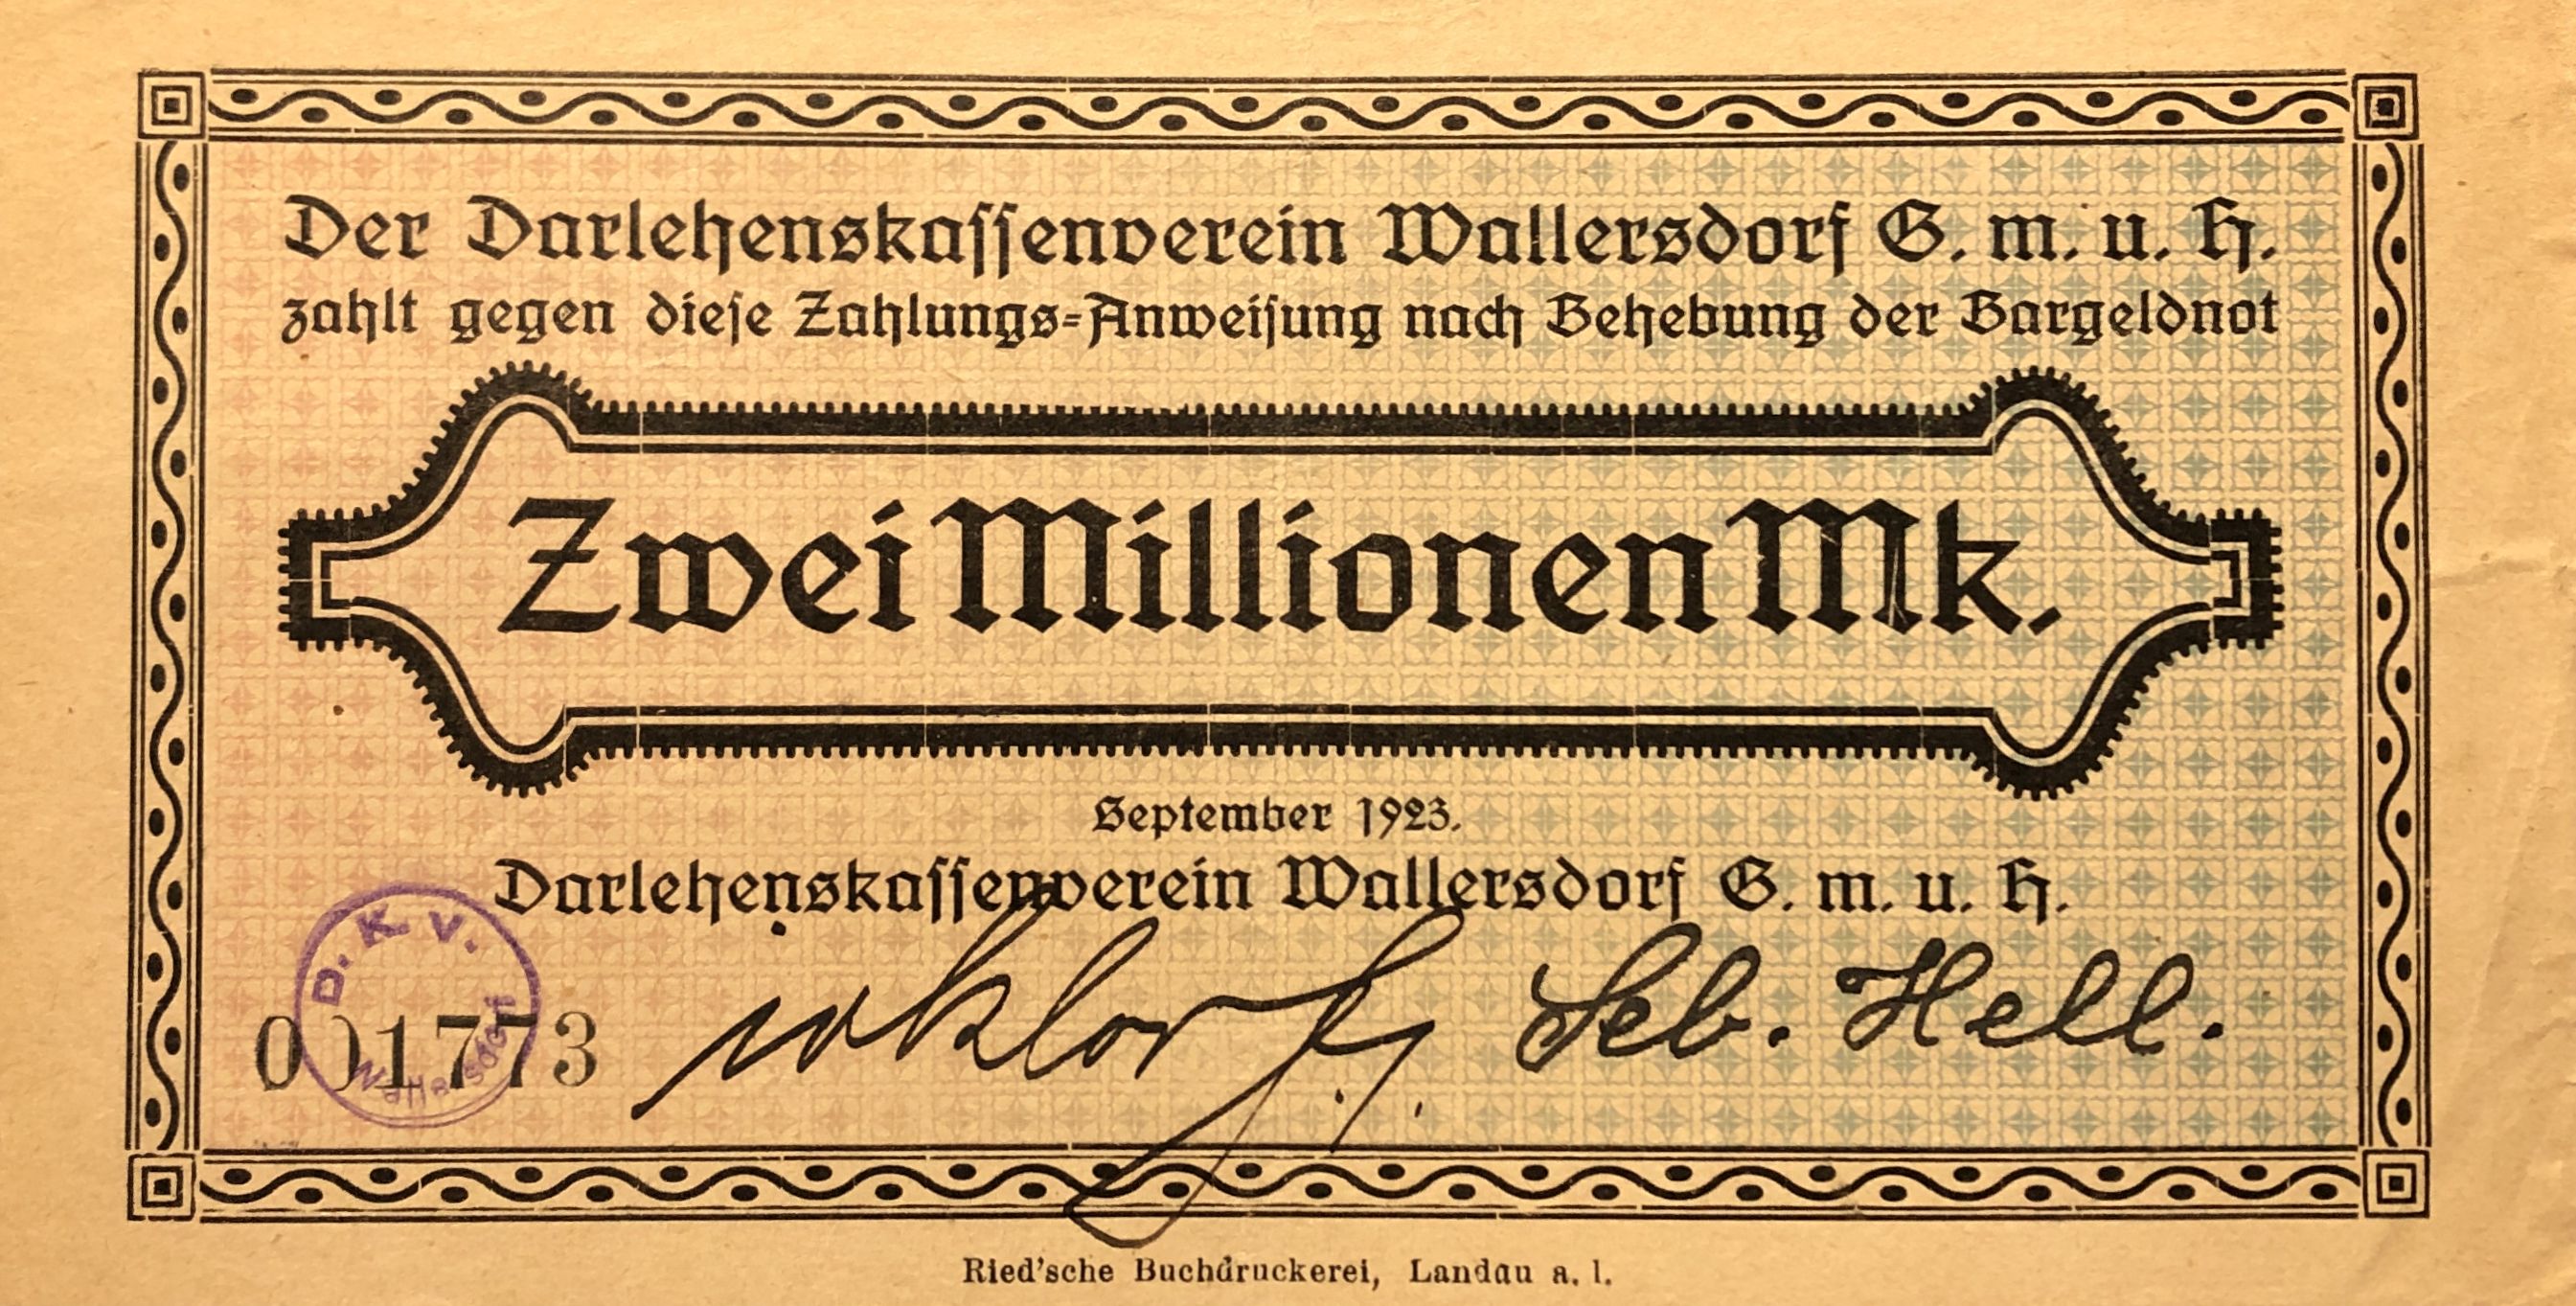 Der Darlehenskassenverein Wallersdorf G. m. u. H.
zahlt gegen diese Zahlungs=Anweisung nach Behebung der Bargeldnot
Zwei Millionen Mk.
September 1923.
Darlehenskassenverein Wallersdorf G. m. u. H.
D. K. V.
Wallersdorf
001773
Seb. Hell.
Ried'sche Buchdruckerei, Landau a. I.